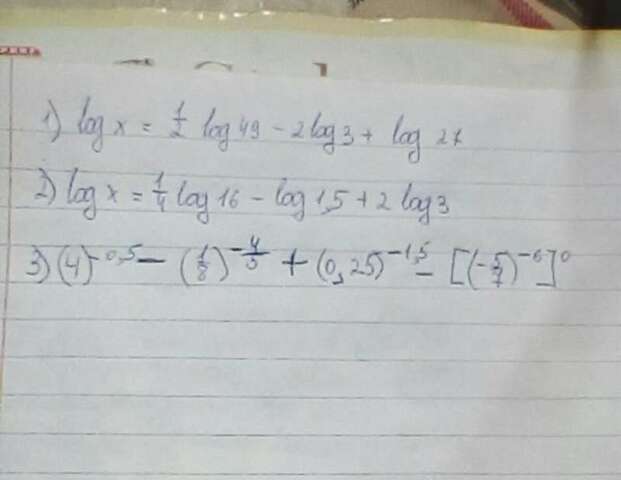 1) log x = 1/2 log 49 - 2 log 3 + log 27
2) log x = 1/4 log 16 - log 1,5 + 2 log 3
3) (4)^-0,5 - (1/8)^-4/3 + (0,25)^-1,5 - [(-5/7)^-6]^0